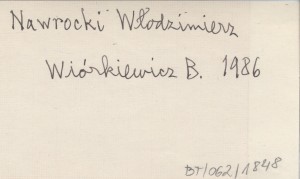 Nawrocki Włodzimierz
Wiórkiewicz B. 1986
BT/062/1848